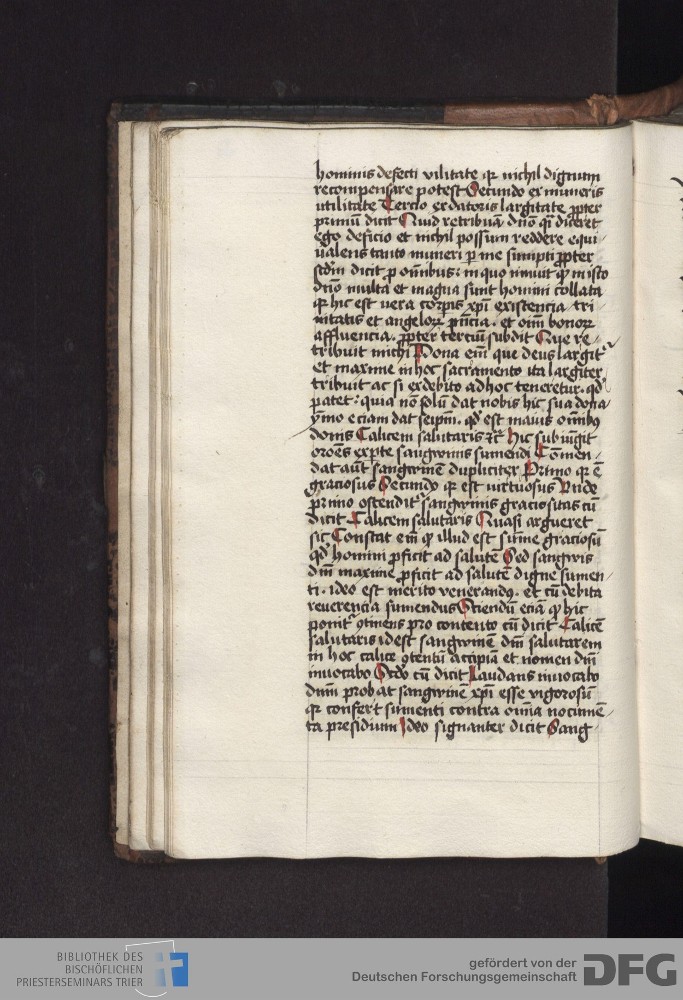 hominis defecti vilitate qr nichil dignum
recompensare potest Secundo ex muneris
utilitate Tercio ex datoris largitate ꝓpter
primū dicit Quid retribuā dnō q̄ diceret
ego deficio et nichil possum reddere equi
ualens tanto muneri per me sumpti ꝓpter
scdm dicit ꝓ omnibus: in quo innuit ꝙ in isto
dnō multa et magna sunt homini collata
qr hic est uera corpis xpi existencia tri
nitatis et angelorꝝ pn̄cia. et oim̄ bonorꝝ
affluencia. ꝓpter terciū subdit Que re
tribuit michi Dona eim̄ que deus largit᷑
et maxime in hoc sacramento ita largiter
tribuit ac si ex debito ad hoc teneretur. qd̓
patet: quia nō solū dat nobis hic sua dona
ymo eciam dat seipm̄. qd̓ est maius omībꝫ
donis Calicem salutaris ⁊c̄ Hic subiūgit
orōes ex pte sangwinis sumendi Cōmen
dat aūt sangwinē dupliciter Primo qr ē
graciosus Secundo qr est uirtuosus Unde
primo ostendit᷑ sangwinis graciositas cū
dicit Calicem salutaris Quasi argueret
sic Constat em̄ ꝙ illud est sūme graciosū
qd̓ homini ꝓficit ad salutē Sed sangwis
dm̄ maxime ꝓficit ad salutē digne sumen
ti. ideo est merito venerandꝰ. et cū debita
reuerencia sumendus Sciendū eciā ꝙ hic
ponit᷑ ꝯtinens pro contento cū dicit Calicē
salutaris idest sangwinē dm̄ salutarem
in hoc calice ꝯtentū accipiā et nomen dm̄
inuocabo Scd̓o cū dicit Laudans inuocabo
dnm̄ probat sangwinē xpi esse vigorosū
qr confert sumenti contra omīa nocumē
ta presidium Ideo signanter dicit Sang
BIBLIOTHEK DES
BISCHÖFLICHEN
PRIESTERSEMINARS TRIER
gefördert von der
Deutschen Forschungsgemeinschaft
DFG